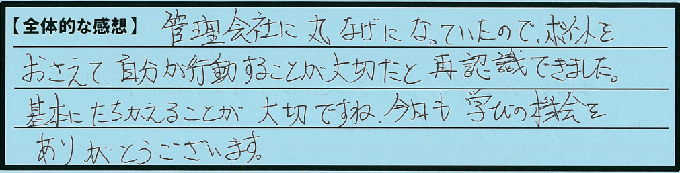 【全体的な感想】 管理会社に丸なげになっていたので、ポイントを
おさえて自分が行動することが大切だと再認識できました。
基本にたちかえることが大切ですね。今日も学びの機会を
ありがとうございます。